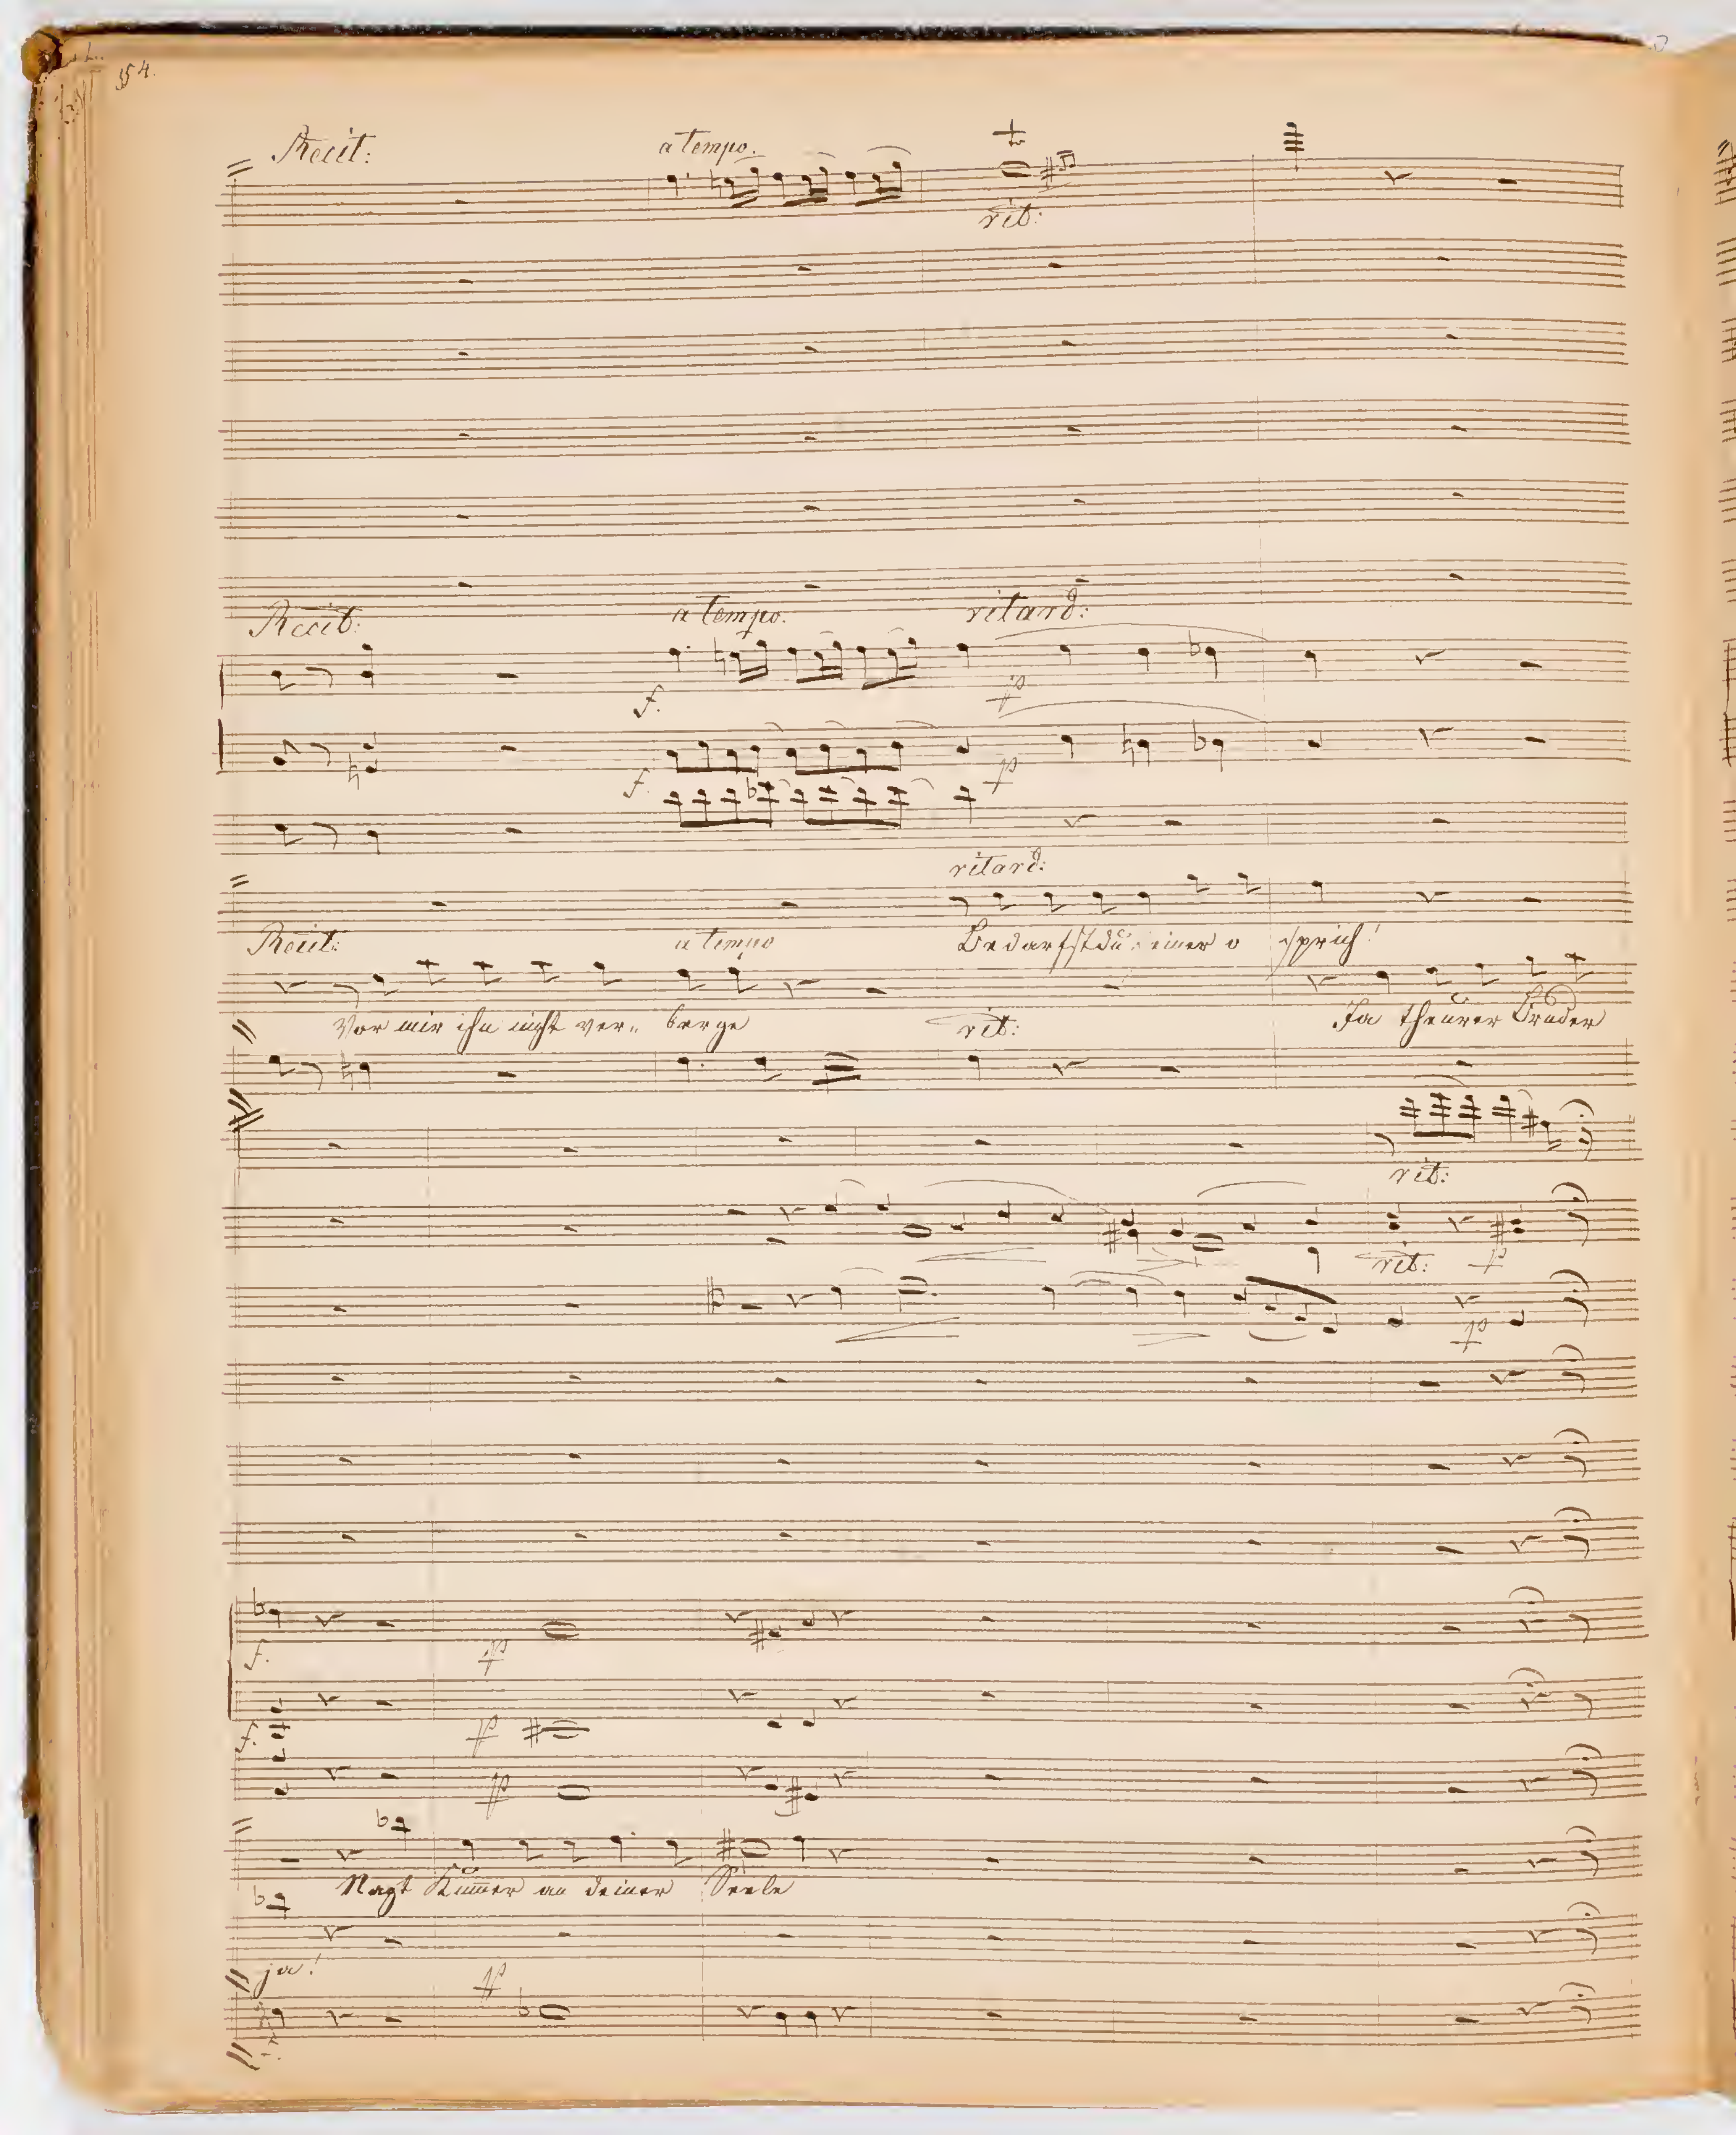 54.
Recit:
a tempo.
tr
rit:
Recit:
a tempo.
ritard:
f.
p
f.
p
ritard:
Recit:
a tempo
Bedarfst du einer o sprich!
Vor mir ihn nicht ver- berge
rit:
Ja theurer Bruder
rit:
rit:
p
p
f.
p
f.
p
p
Nagt Kum̅er an deiner Seele
ja!
p